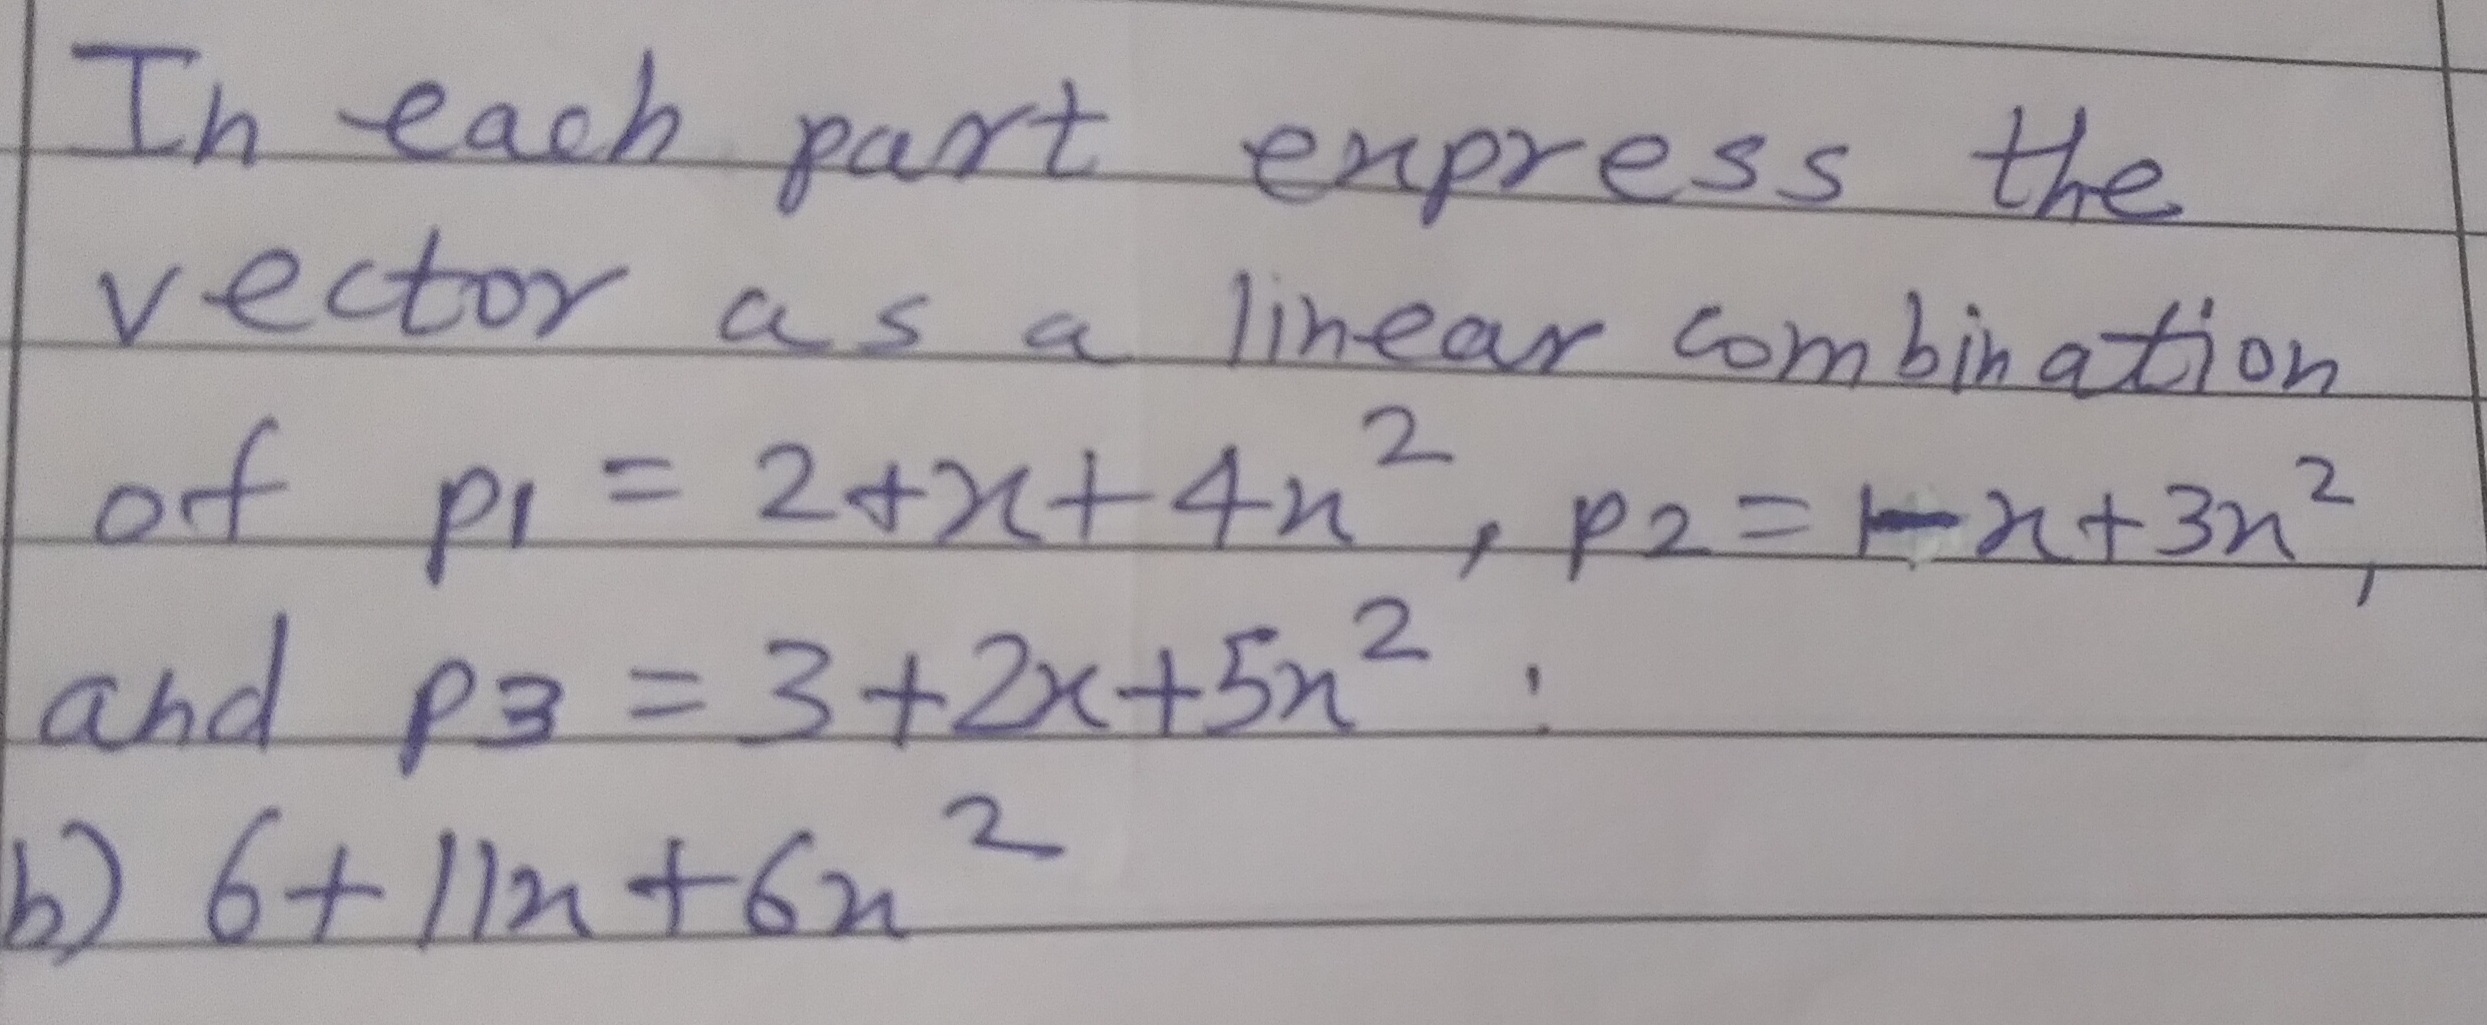 In each part express the
vector as a linear combination
of p1 = 2+x+4x², p2 = 1-x+3x²,
and p3 = 3+2x+5x² :
b) 6+11x+6x²